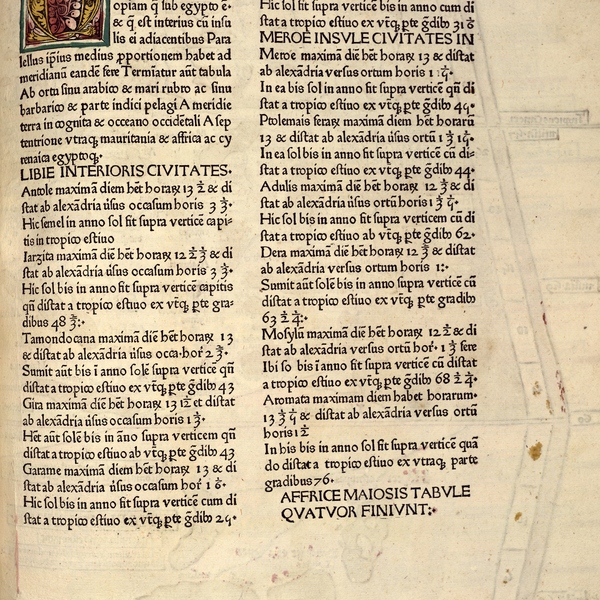 opiam q̃ sub egypto ē·
& q̃ est interius cũ insu
lis ei adiacentibus Para
lellus ip̃ius medius ꝓportionem habet ad
meridianũ eandē fere Termiatur aũt tabula
Ab ortu sinu arabico & mari rubro ac sinu
barbarico & parte indici pelagi A meridie
terra in cognita & occeano occidētali A sep
tentrione vtraq; mauritania & affrica ac cy
renaica egyptoq;
LIBIE INTERIORIS CIVITATES·
Antole maximã diem hēt horaꝝ 13 ½ & di
stat ab alexãdria ũsus occasum horis 3
Hic semel in anno sol fit supra verticē capi-
tis in tropico estiuo
Iargita maximã diē hēt horaꝝ 12 & di
stat ab alexãdria ũsus occasum horis 3
Hic sol bis in anno fit supra verticē capitis
qñ distat a tropico estiuo ex vt̃q; ꝑte gra-
dibus 48
Tamondocana maximã diē hēt horaꝝ 13
& distat ab alexãdria ũsus occa·hor̃ 2
Sumit aũt bis ĩ anno solē supra verticē qñ
distat a tropico estiuo ex vt̃q; ꝑte g̃dib₉ 43
Gira maximã diē hēt horaꝝ 13 et distat
ab alexãdria ũsus occasum horis 1
Hēt aũt solē bis in ãno supra verticem qñ
distat a tropico estiuo ab vt̃q; ꝑte g̃dib₉ 43
Garame maximã diem hēt horaꝝ 13 & di
stat ab alexãdria ũsus occasum hor̃ 1
Hic sol bis in anno fit supra verticē cum di
stat a tropico estiuo ex vt̃q; ꝑte g̃dib₉
Hic sol fit supra verticē bis in anno cum di
stat a tropico estiuo ex vt̃q; ꝑte g̃dib₉ 31
MEROE INSVLE CIVITATES IN
Meroe maximã diē hēt horaꝝ 13 & distat
ab alexãdria versus ortum horis 1
In ea bis sol in anno fit supra verticē qñ di
stat a tropico estiuo ex vt̃q; ꝑte g̃dib₉
Ptolemais feraꝝ maximã diem hēt horarũ
13 & distat ab alexãdria ũsus ortũ
In ea sol bis in anno fit supra verticē cũ di-
stat a tropico estiuo ex vt̃q; ꝑte g̃dib₉ 44·
Adulis maximã diē hēt horaꝝ 12 & di
stat ab alexãdria ũsus ortũ horis 1
Hic sol bis in anno fit supra verticem cũ di
stat a tropico estiuo ab vt̃q; ꝑte g̃dib₉ 62·
Dera maximã diē hēt horaꝝ 12 & distat
ab alexãdria versus ortum horis 1:·
Sumit aũt solē bis in anno supra verticē cũ
distat a tropico estiuo ex vt̃q; ꝑte gradib₉
63
Mosylũ maximã diē hēt horaꝝ 12 & di
stat ab alexãdria versus ortũ hor̃· 1 fere
Ibi so bis ĩ anno fit supra verticē cũ distat
a tropico estiuo ex vt̃q; ꝑte g̃dib₉ 68
Aromata maximam diem habet horarum·
13 & distat ab alexãdria versus ortũ
horis
In bis bis in anno sol fit supra verticē quã
do distat a tropico estiuo ex vtraq; parte
gradibus 76·
AFFRICE MAIOSIS TABVLE
QVATVOR FINIVNT:·